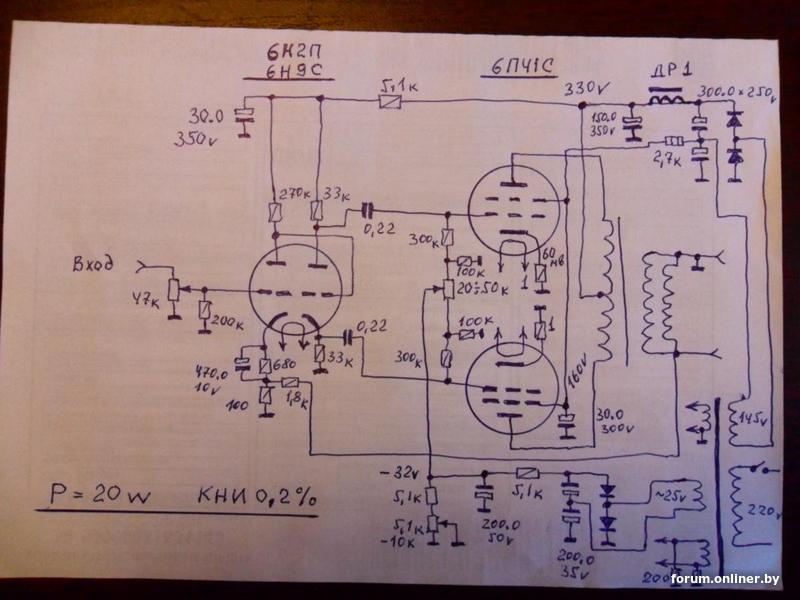 6Н2П
6Н9С
6ПЧ1С
ДР1
5,1к
330v
300.0 × 250v
30.0
350v
150.0
350v
2,7к
270к
33к
0,22
300к
60
мв
Вход
100к
1
20÷50к
47к
200к
0,22
100к
1
33к
300к
470.0
10v
680
100
1,8к
160v
30.0
300v
145v
-32v
5,1к
5,1к
~25v
P = 20w
КНИ 0,2%
5,1к
-10к
200.0
50v
220v
200.0
35v
200
forum.onliner.by